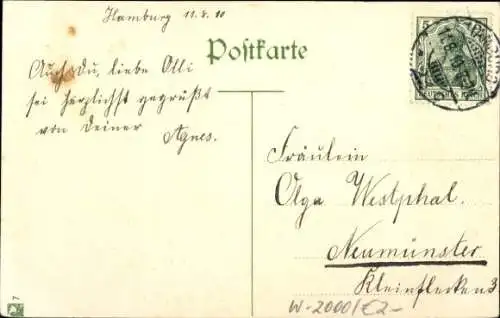 Hamburg 11.8.10
Postkarte
5
Auch Du, liebe Olli
sei herzlichst gegrüßt
von Deiner
Agnes.
Fräulein
Olga Westphal.
Neumünster
Kleinflecken 3
W-2000/€2-
7